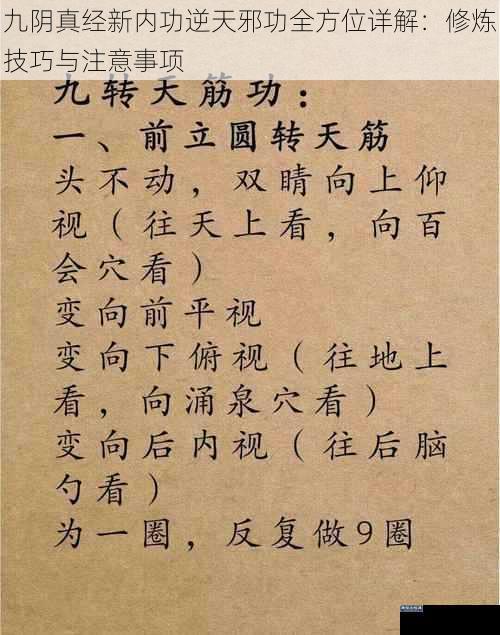 九阴真经新内功逆天邪功全方位详解：修炼
技巧与注意事项
九转天筋功：
一、前立圆转天筋
头不动，双睛向上仰
视（往天上看，向百
会穴看）
变向前平视
变向下俯视（往地上
看，向涌泉穴看）
变向后内视（往后脑
勺看）
为一圈，反复做9圈